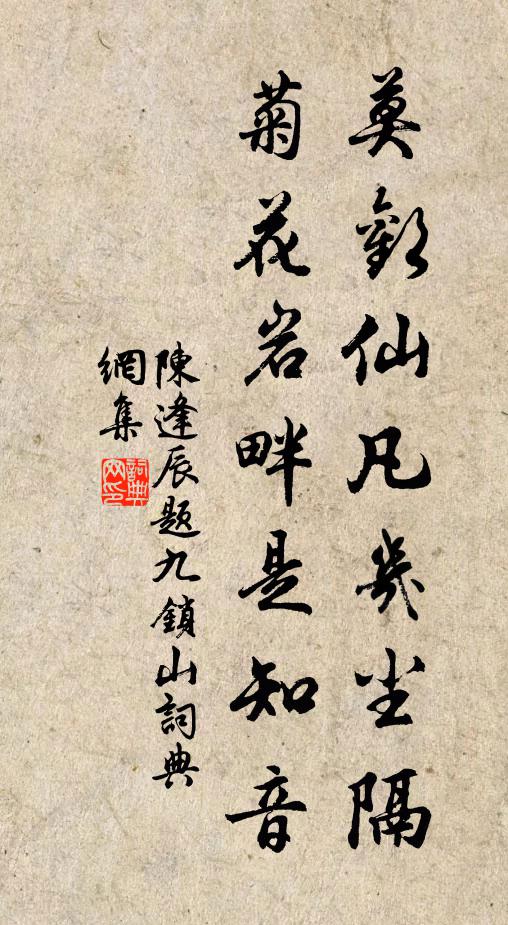 莫歎仙凡幾尘隔
菊花岩畔是知音
陳逢辰题九鎖山詞典
網集
詞典
网印